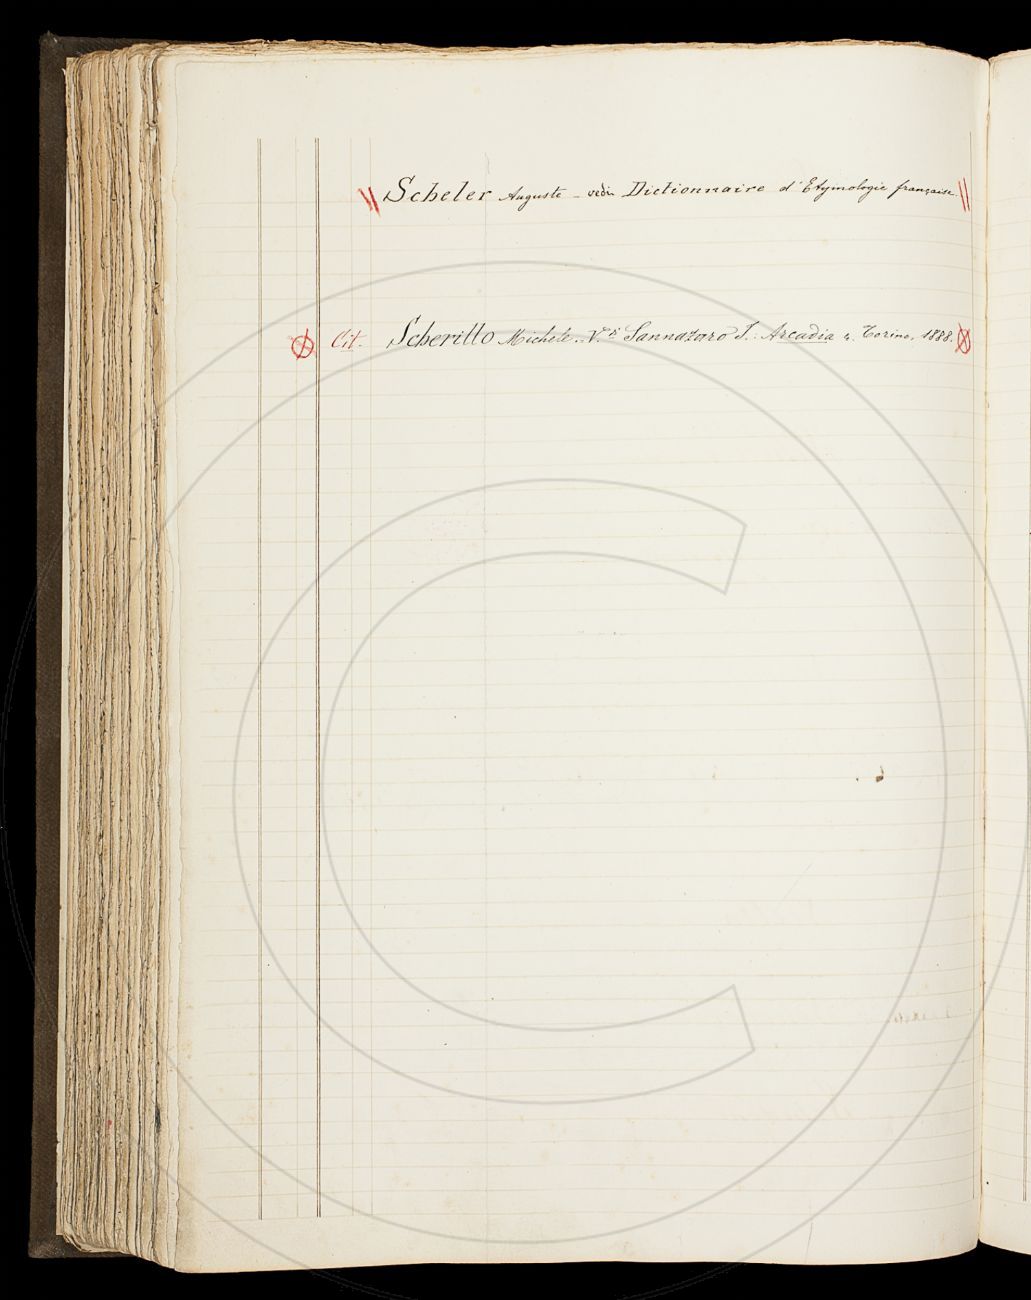 Scheler Auguste - vedi Dictionnaire d'Etymologie française
Cit. Scherillo Michele. V.di Sannazaro J.: Arcadia Torino, 1888.